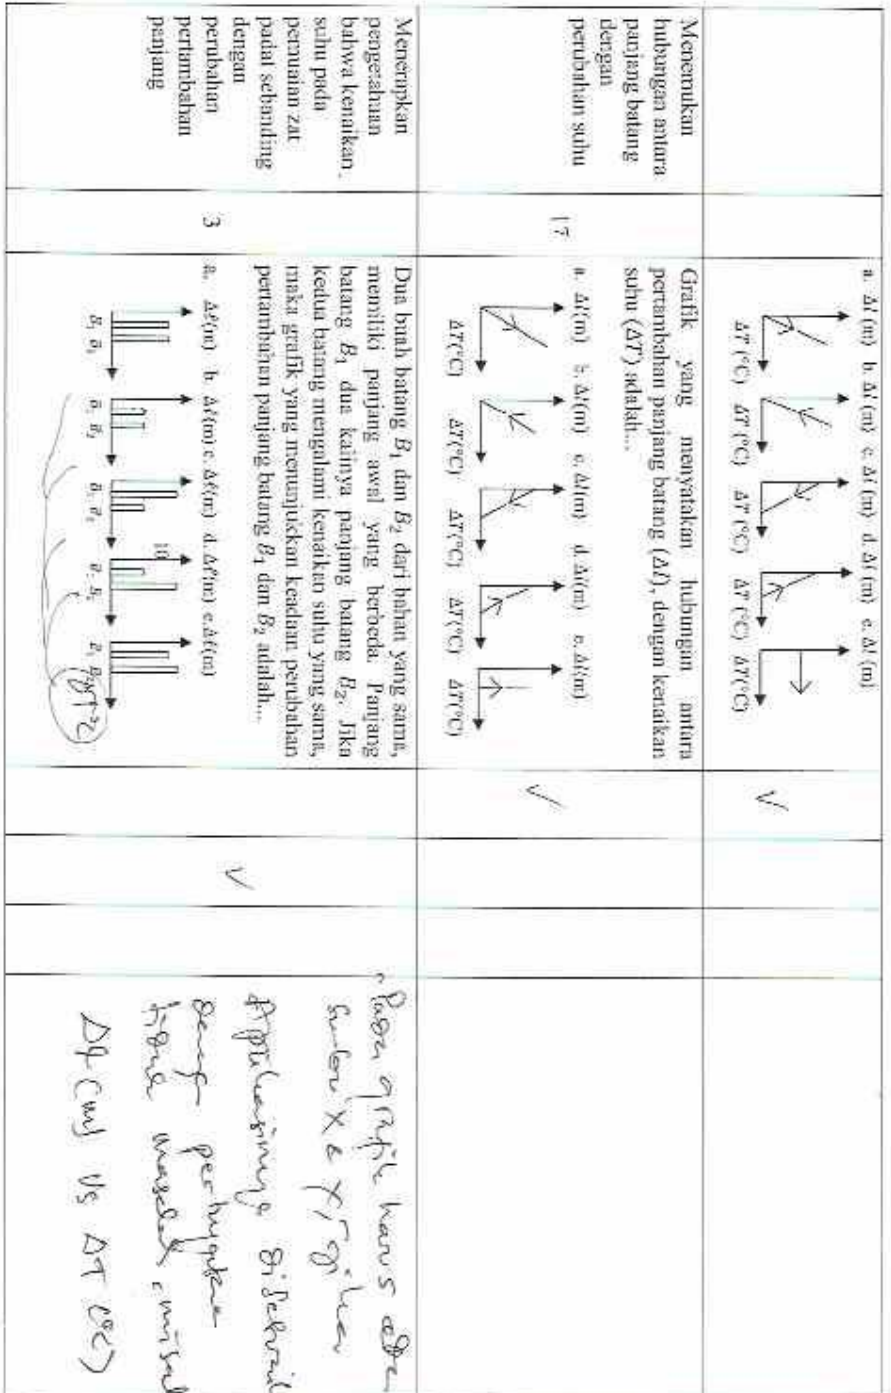 a. Δl (m) b. Δl (m) c. Δl (m) d. Δl (m) e. Δl (m)
ΔT (°C) ΔT (°C) ΔT (°C) ΔT (°C) ΔT(°C)
Menemukan
hubungan antara
panjang batang
dengan
perubahan suhu
17
Grafik yang menyatakan hubungan antara
pertambahan panjang batang (Δl), dengan kenaikan
suhu (ΔT) adalah...
a. Δl(m) b. Δl(m) c. Δl(m) d. Δl(m) e. Δl(m)
ΔT(°C) ΔT(°C) ΔT(°C) ΔT(°C) ΔT(°C)
Menerapkan
pengetahuan
bahwa kenaikan
suhu pada
pemuaian zat
padat sebanding
dengan
perubahan
pertambahan
panjang
3
Dua buah batang B₁ dan B₂ dari bahan yang sama,
memiliki panjang awal yang berbeda. Panjang
batang B₁ dua kalinya panjang batang B₂. Jika
kedua batang mengalami kenaikan suhu yang sama,
maka grafik yang menunjukkan keadaan perubahan
pertambahan panjang batang B₁ dan B₂ adalah...
a. Δℓ(m) b. Δℓ(m) c. Δℓ(m) d. Δℓ(m) e. Δℓ(m)
10
B₁ B₂ B₁ B₂ B₁ B₂ B₁ B₂ B₁ B₂
Pada grafik harus ada
sumbu x & y,
dengan
Δℓ (m) Vs ΔT (°C)